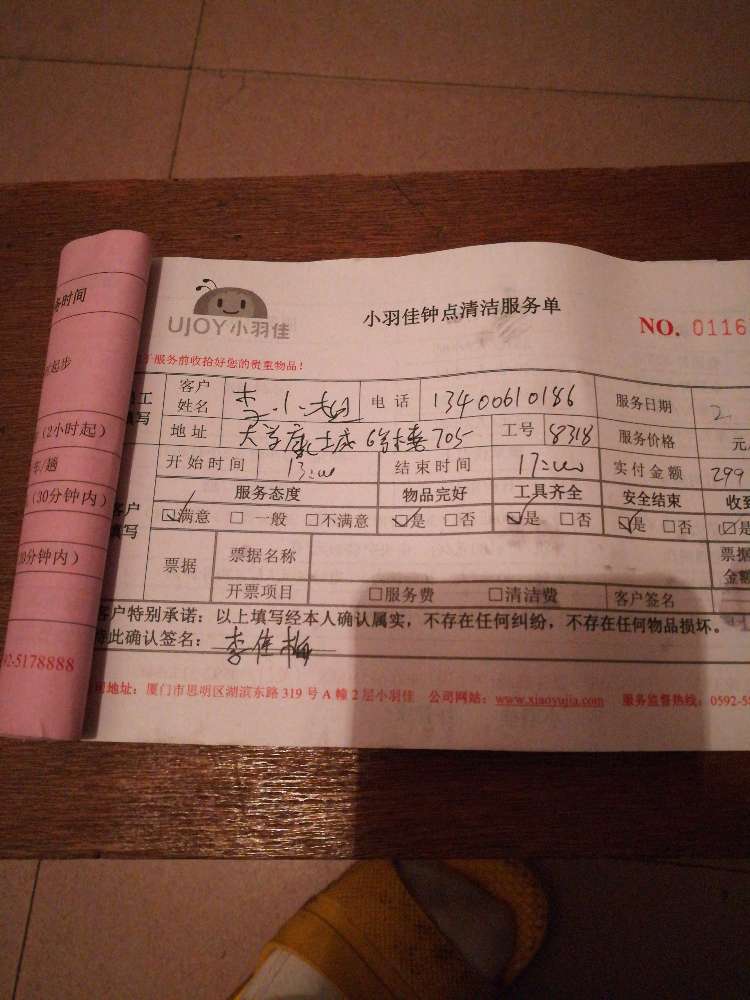 务时间
起步
(2小时起)
车/趟
(30分钟内)
30分钟内)
92-5178888
UJOY小羽佳
小羽佳钟点清洁服务单
NO. 0116
服务前收拾好您的贵重物品!
工 客户姓名 李小姐 电话 13400610186 服务日期 2.
填写 地址 大学康城6号楼705 工号 8318 服务价格 元
开始时间 13:00 结束时间 17:00 实付金额 299
服务态度 物品完好 工具齐全 安全结束 收到
客户填写 ☑满意 □一般 □不满意 ☑是 □否 ☑是 □否 ☑是 □否 ☑是
票据 票据名称 票据金额
开票项目 □服务费 □清洁费 客户签名
客户特别承诺:以上填写经本人确认属实,不存在任何纠纷,不存在任何物品损坏。
此确认签名: 李佳梅
地址:厦门市思明区湖滨东路319号A幢2层小羽佳 公司网站:www.xiaoyujia.com 服务监督热线:0592-58